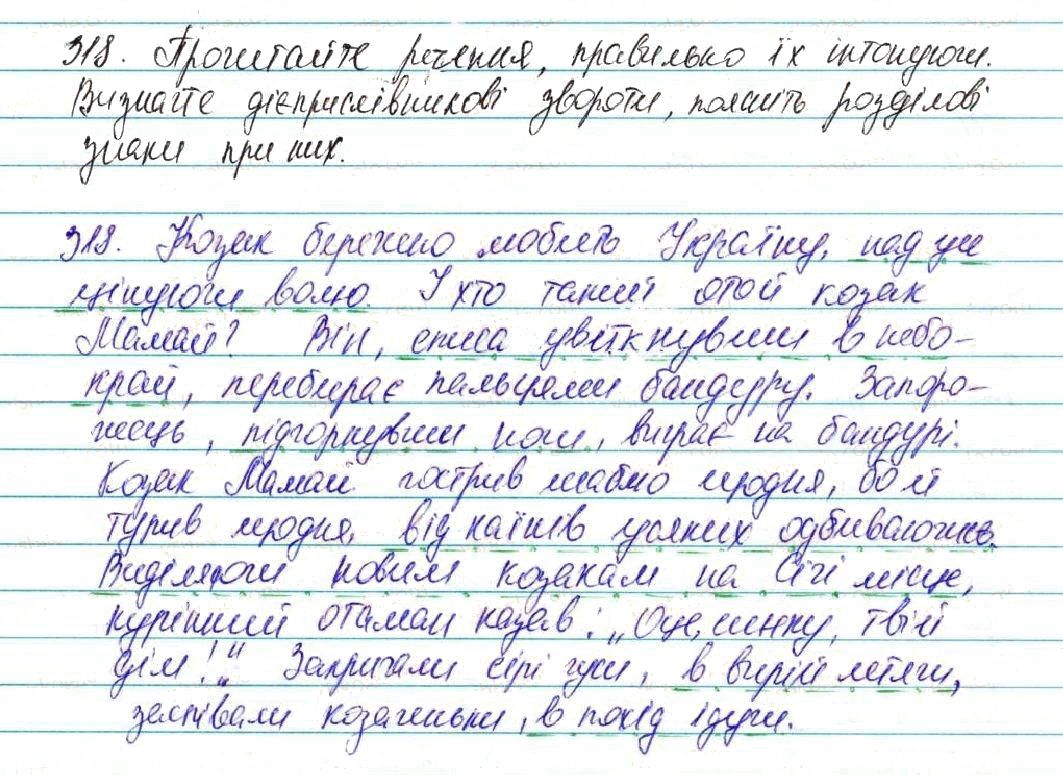 318. Прочитайте речення, правильно їх інтонуючи.
Визначте дієприслівникові звороти, поясніть розділові
знаки при них.
318. Козак бережно любить Україну, над усе
цінуючи волю. І хто такий отой козак
Мамай? Він, списа увіткнувши в небо-
край, перебирає пальцями бандуру. Запоро-
жець, підгорнувши ноги, виграє на бандурі.
Козак Мамай гострив шаблю щодня, бо й
тупив щодня, від наїзників усяких одбиваючись.
Виділяючи новим козакам на Січі місце,
курінний отаман казав: „Оце, синку, твій
дім!“ Закричали сірі гуси, в вирій летячи,
заспівали козаченьки, в похід ідучи.